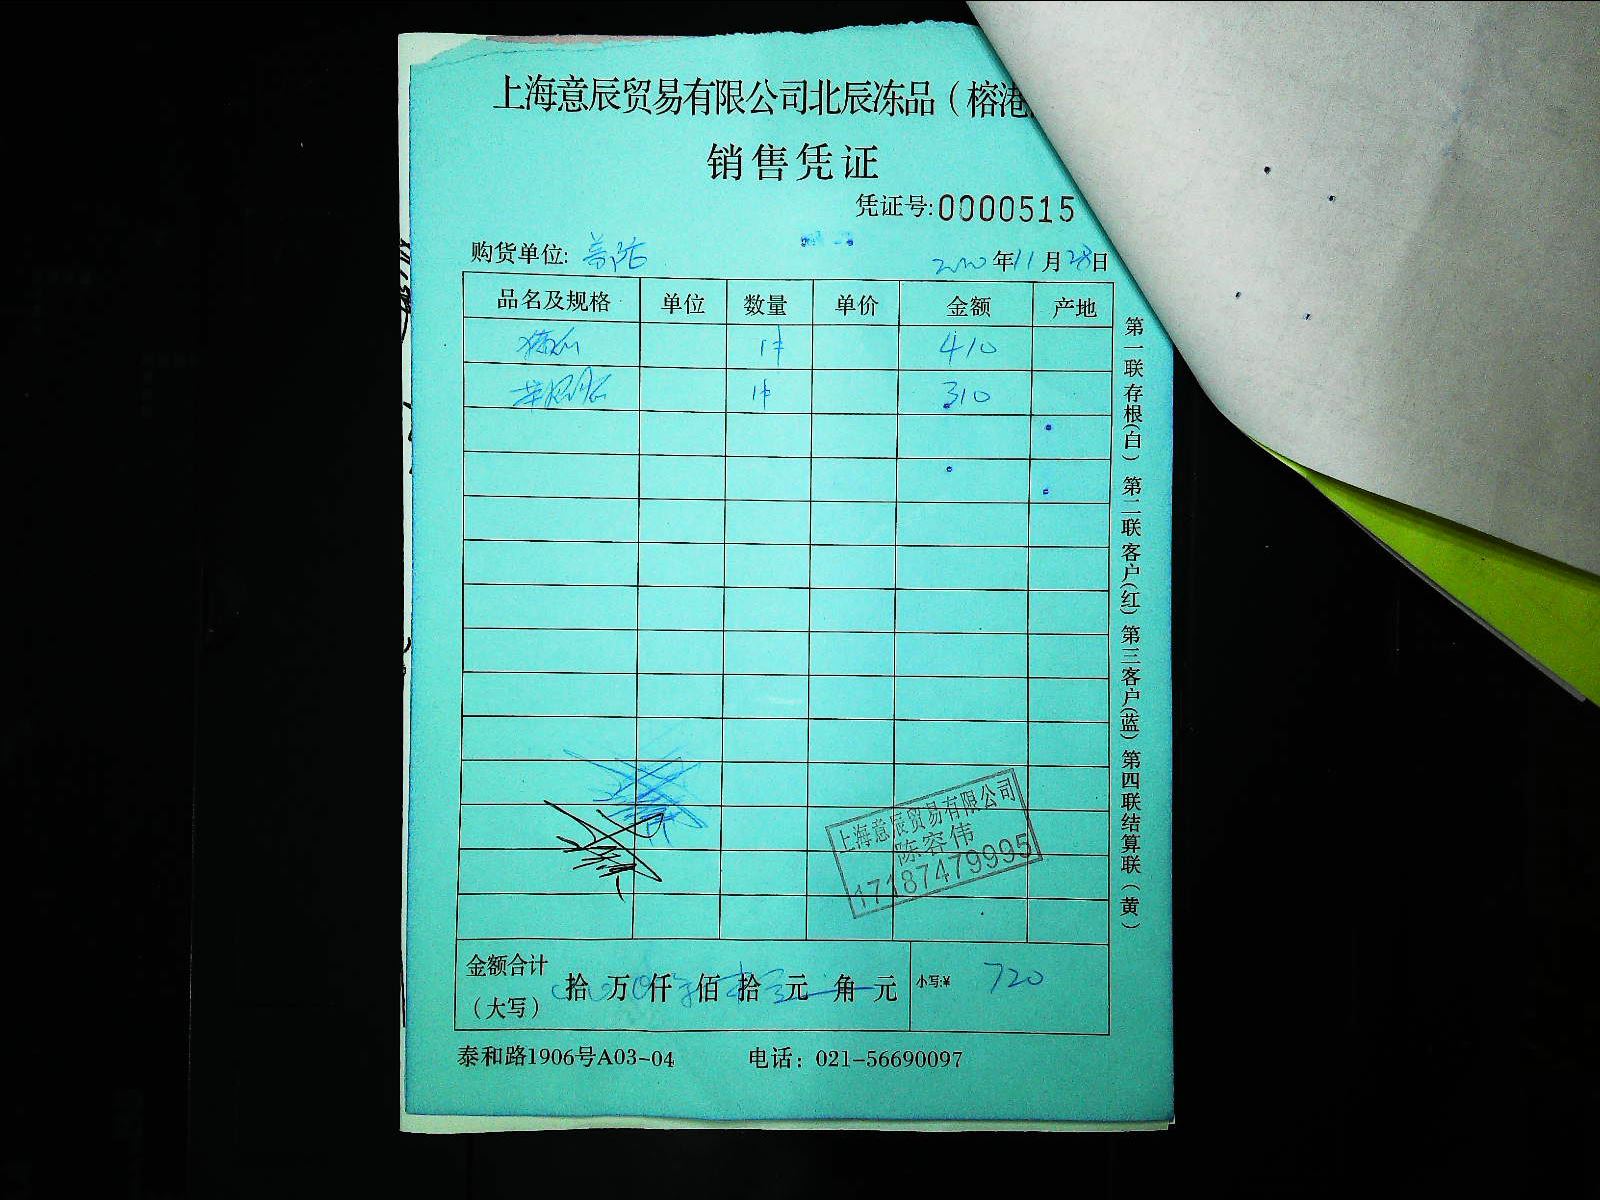 上海意辰贸易有限公司北辰冻品（榕港
销售凭证
凭证号:0000515
购货单位:
2020年11月28日
品名及规格 单位 数量 单价 金额 产地
1件 410
1件 310
上海意辰贸易有限公司
陈容伟
17187479995
金额合计
（大写）
拾 万 仟 佰 拾 元 角 元
小写:¥ 720
泰和路1906号A03-04 电话：021-56690097
第一联存根(白) 第二联客户(红) 第三客户(蓝) 第四联结算联(黄)